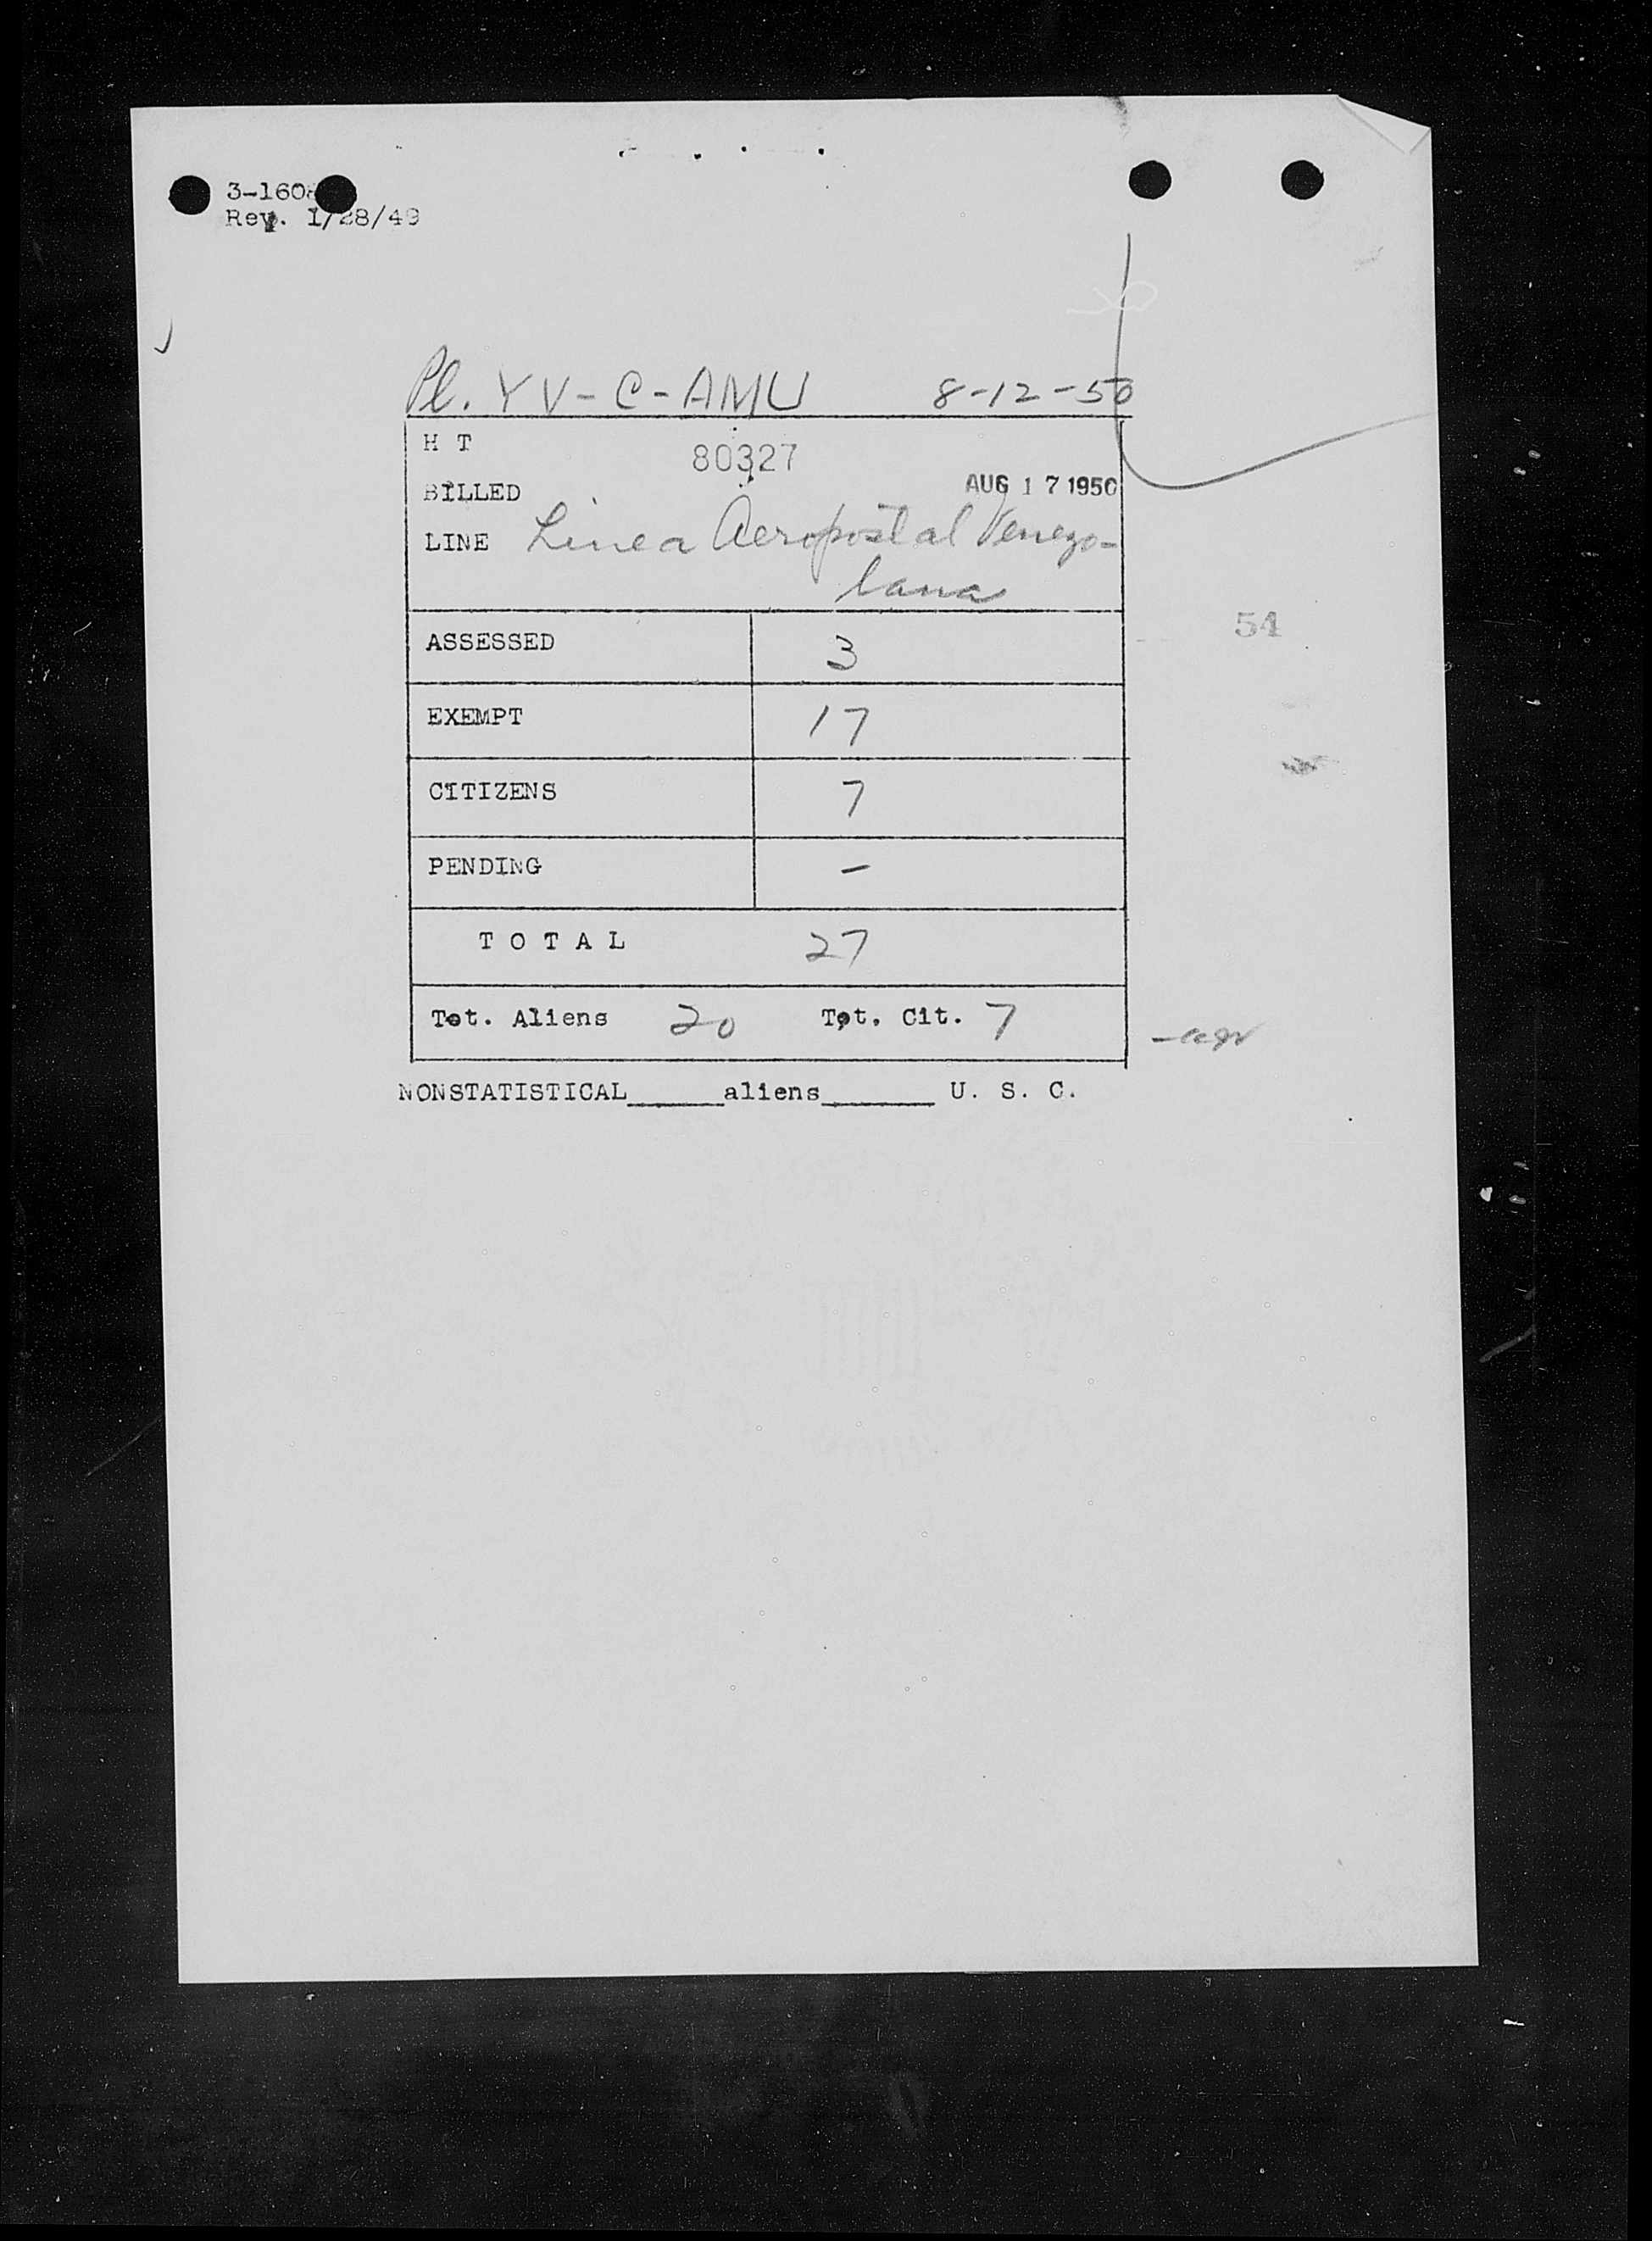 3-160
Rev. 1/28/49
Pl. YV-C-AMU 8-12-50
H T 80327
BILLED AUG 17 1950
LINE Linea Aeropostal Venezo-
lana
ASSESSED 3
54
EXEMPT 17
CITIZENS 7
PENDING -
TOTAL 27
Tot. Aliens 20 Tot. Cit. 7
NONSTATISTICAL______aliens_______ U. S. C.